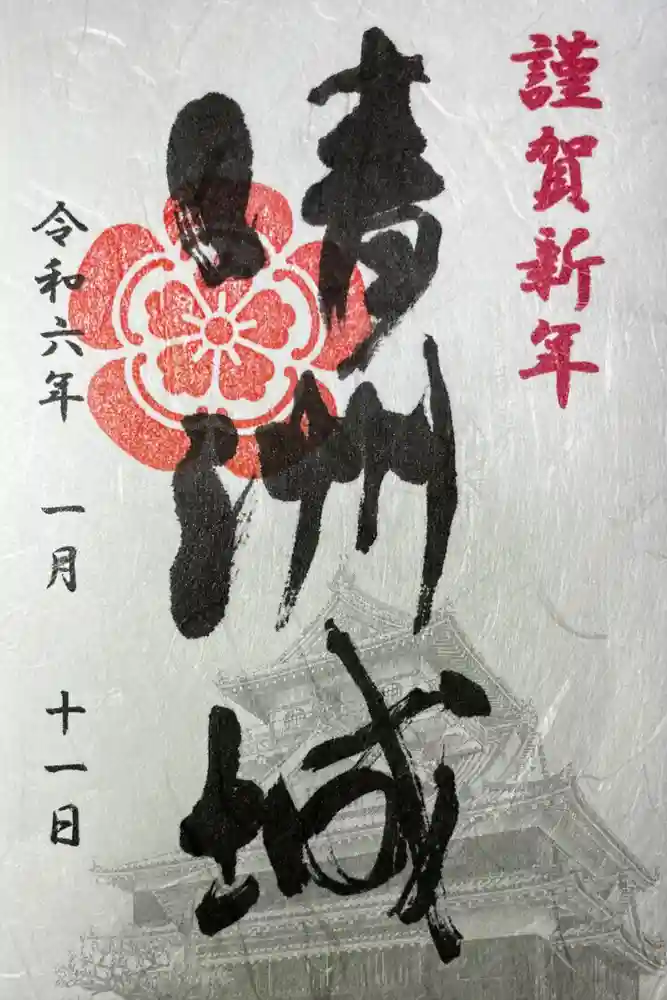 謹賀新年
清洲城
令和六年 一月 十一日